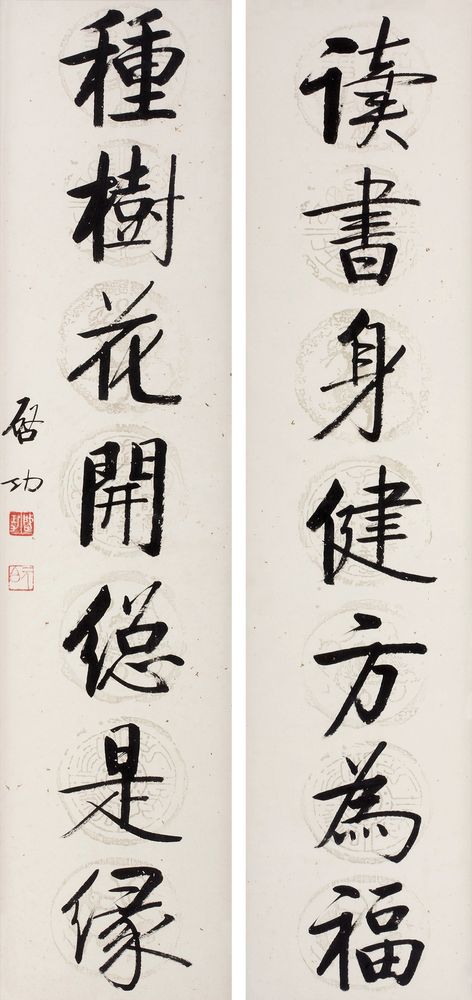 读書身健方為福
種樹花開總是緣
启功